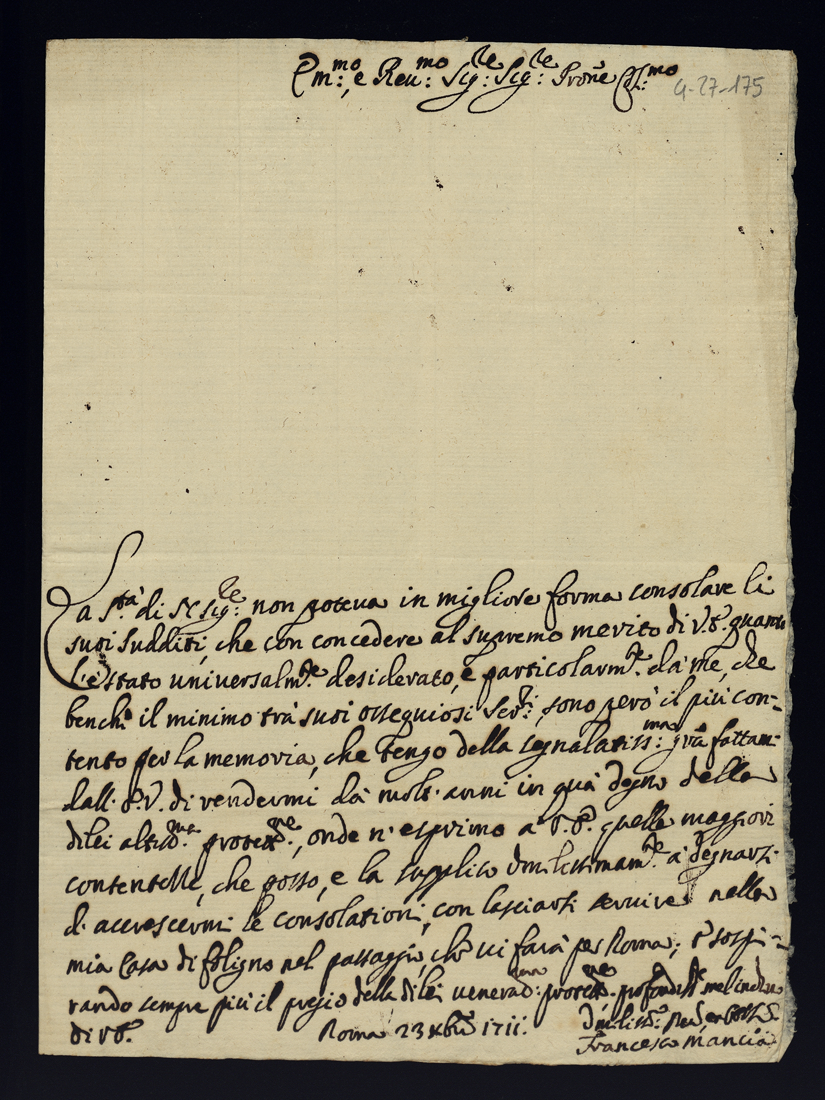 Em.mo, e Reu.mo Sig.re Sig.re Prone Col.mo
4-27-175
La S.tà di N Sig.re non poteua in migliore forma consolare li
suoi sudditi, che con concedere al supremo merito di V.E. quanto
è stato universalm.te desiderato, e particolarm.te da me, che
benche il minimo trà suoi ossequiosi Ser.ri, sono però il più con-
tento per la memoria, che tengo della segnalatiss.ma gra fattami
dall' E.V. di rendermi dà molti anni in quà degno della
di lei altiss.ma protet.ne, onde n'esprimo a V.E. quelle maggiori
contentezze, che posso, e la supplico umilissimam.te à degnarsi
di accrescermi le consolationi, con lasciarsi servire nella
mia Casa di foligno nel passaggio, che ui farà per Roma; e sospi-
rando sempre più il pregio della di lei venerad.ma protet.ne profondiss.te mel'inchino
di V.E. Roma 23 xbre 1711. Umiliss.o
Francesco Mancia